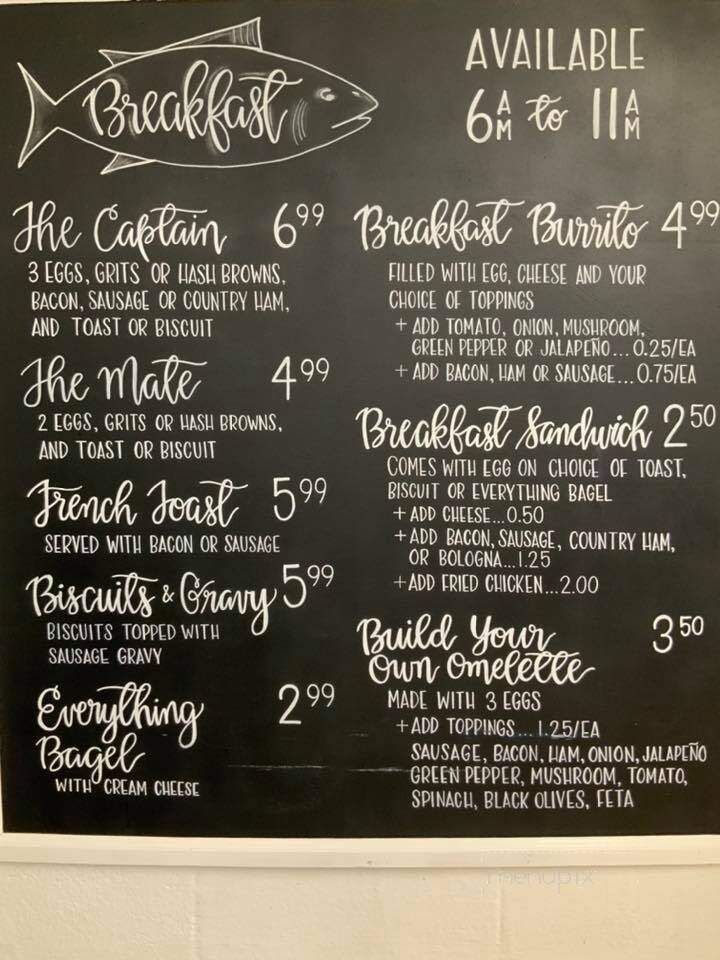 Breakfast
AVAILABLE
6AM to 11AM
The Captain 6.99
3 EGGS, GRITS OR HASH BROWNS,
BACON, SAUSAGE OR COUNTRY HAM,
AND TOAST OR BISCUIT
The Mate 4.99
2 EGGS, GRITS OR HASH BROWNS,
AND TOAST OR BISCUIT
French Toast 5.99
SERVED WITH BACON OR SAUSAGE
Biscuits & Gravy 5.99
BISCUITS TOPPED WITH
SAUSAGE GRAVY
Everything 2.99
Bagel
WITH CREAM CHEESE
Breakfast Burrito 4.99
FILLED WITH EGG, CHEESE AND YOUR
CHOICE OF TOPPINGS
+ ADD TOMATO, ONION, MUSHROOM,
GREEN PEPPER OR JALAPEÑO...0.25/EA
+ ADD BACON, HAM OR SAUSAGE...0.75/EA
Breakfast Sandwich 2.50
COMES WITH EGG ON CHOICE OF TOAST,
BISCUIT OR EVERYTHING BAGEL
+ ADD CHEESE...0.50
+ ADD BACON, SAUSAGE, COUNTRY HAM,
OR BOLOGNA...1.25
+ ADD FRIED CHICKEN...2.00
Build Your 3.50
Own Omelette
MADE WITH 3 EGGS
+ ADD TOPPINGS...1.25/EA
SAUSAGE, BACON, HAM, ONION, JALAPEÑO
GREEN PEPPER, MUSHROOM, TOMATO,
SPINACH, BLACK OLIVES, FETA
menupix